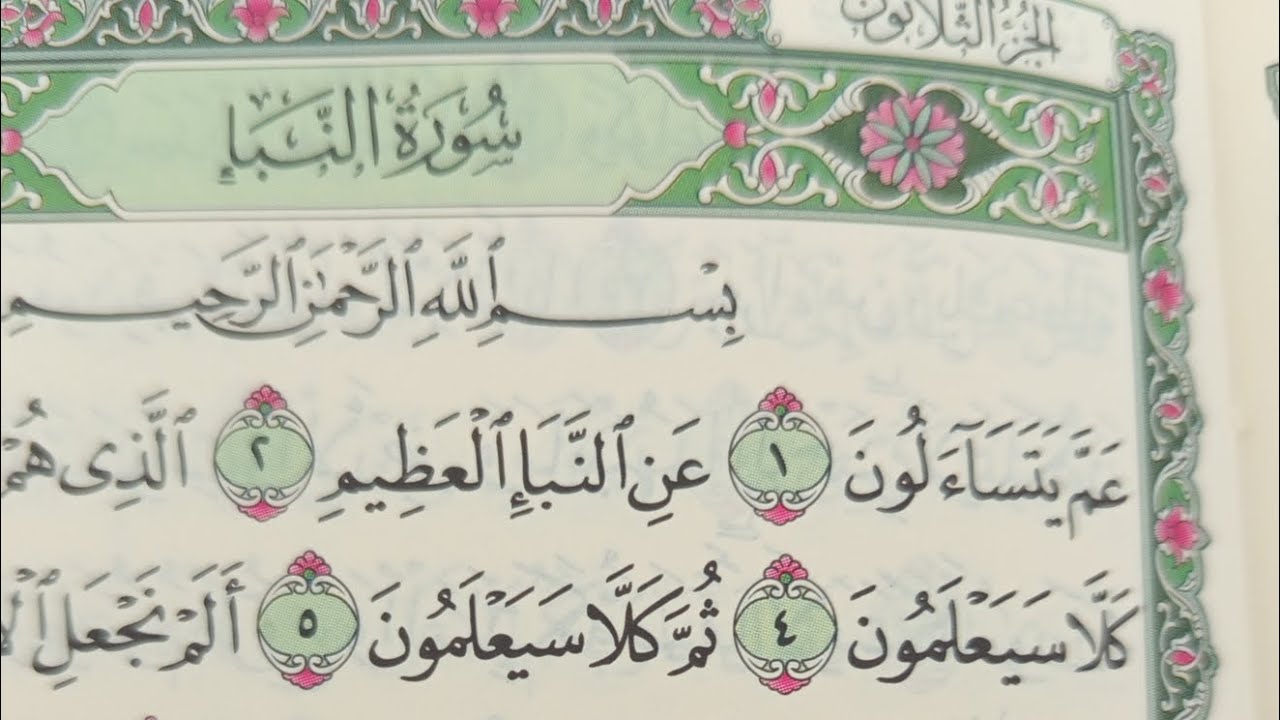 الجزء الثلاثون
سُورَةُ النَّبَإِ
بِسْمِ ٱللَّهِ ٱلرَّحْمَٰنِ ٱلرَّحِيمِ
عَمَّ يَتَسَآءَلُونَ ١ عَنِ ٱلنَّبَإِ ٱلْعَظِيمِ ٢ ٱلَّذِى هُمْ
كَلَّا سَيَعْلَمُونَ ٤ ثُمَّ كَلَّا سَيَعْلَمُونَ ٥ أَلَمْ نَجْعَلِ